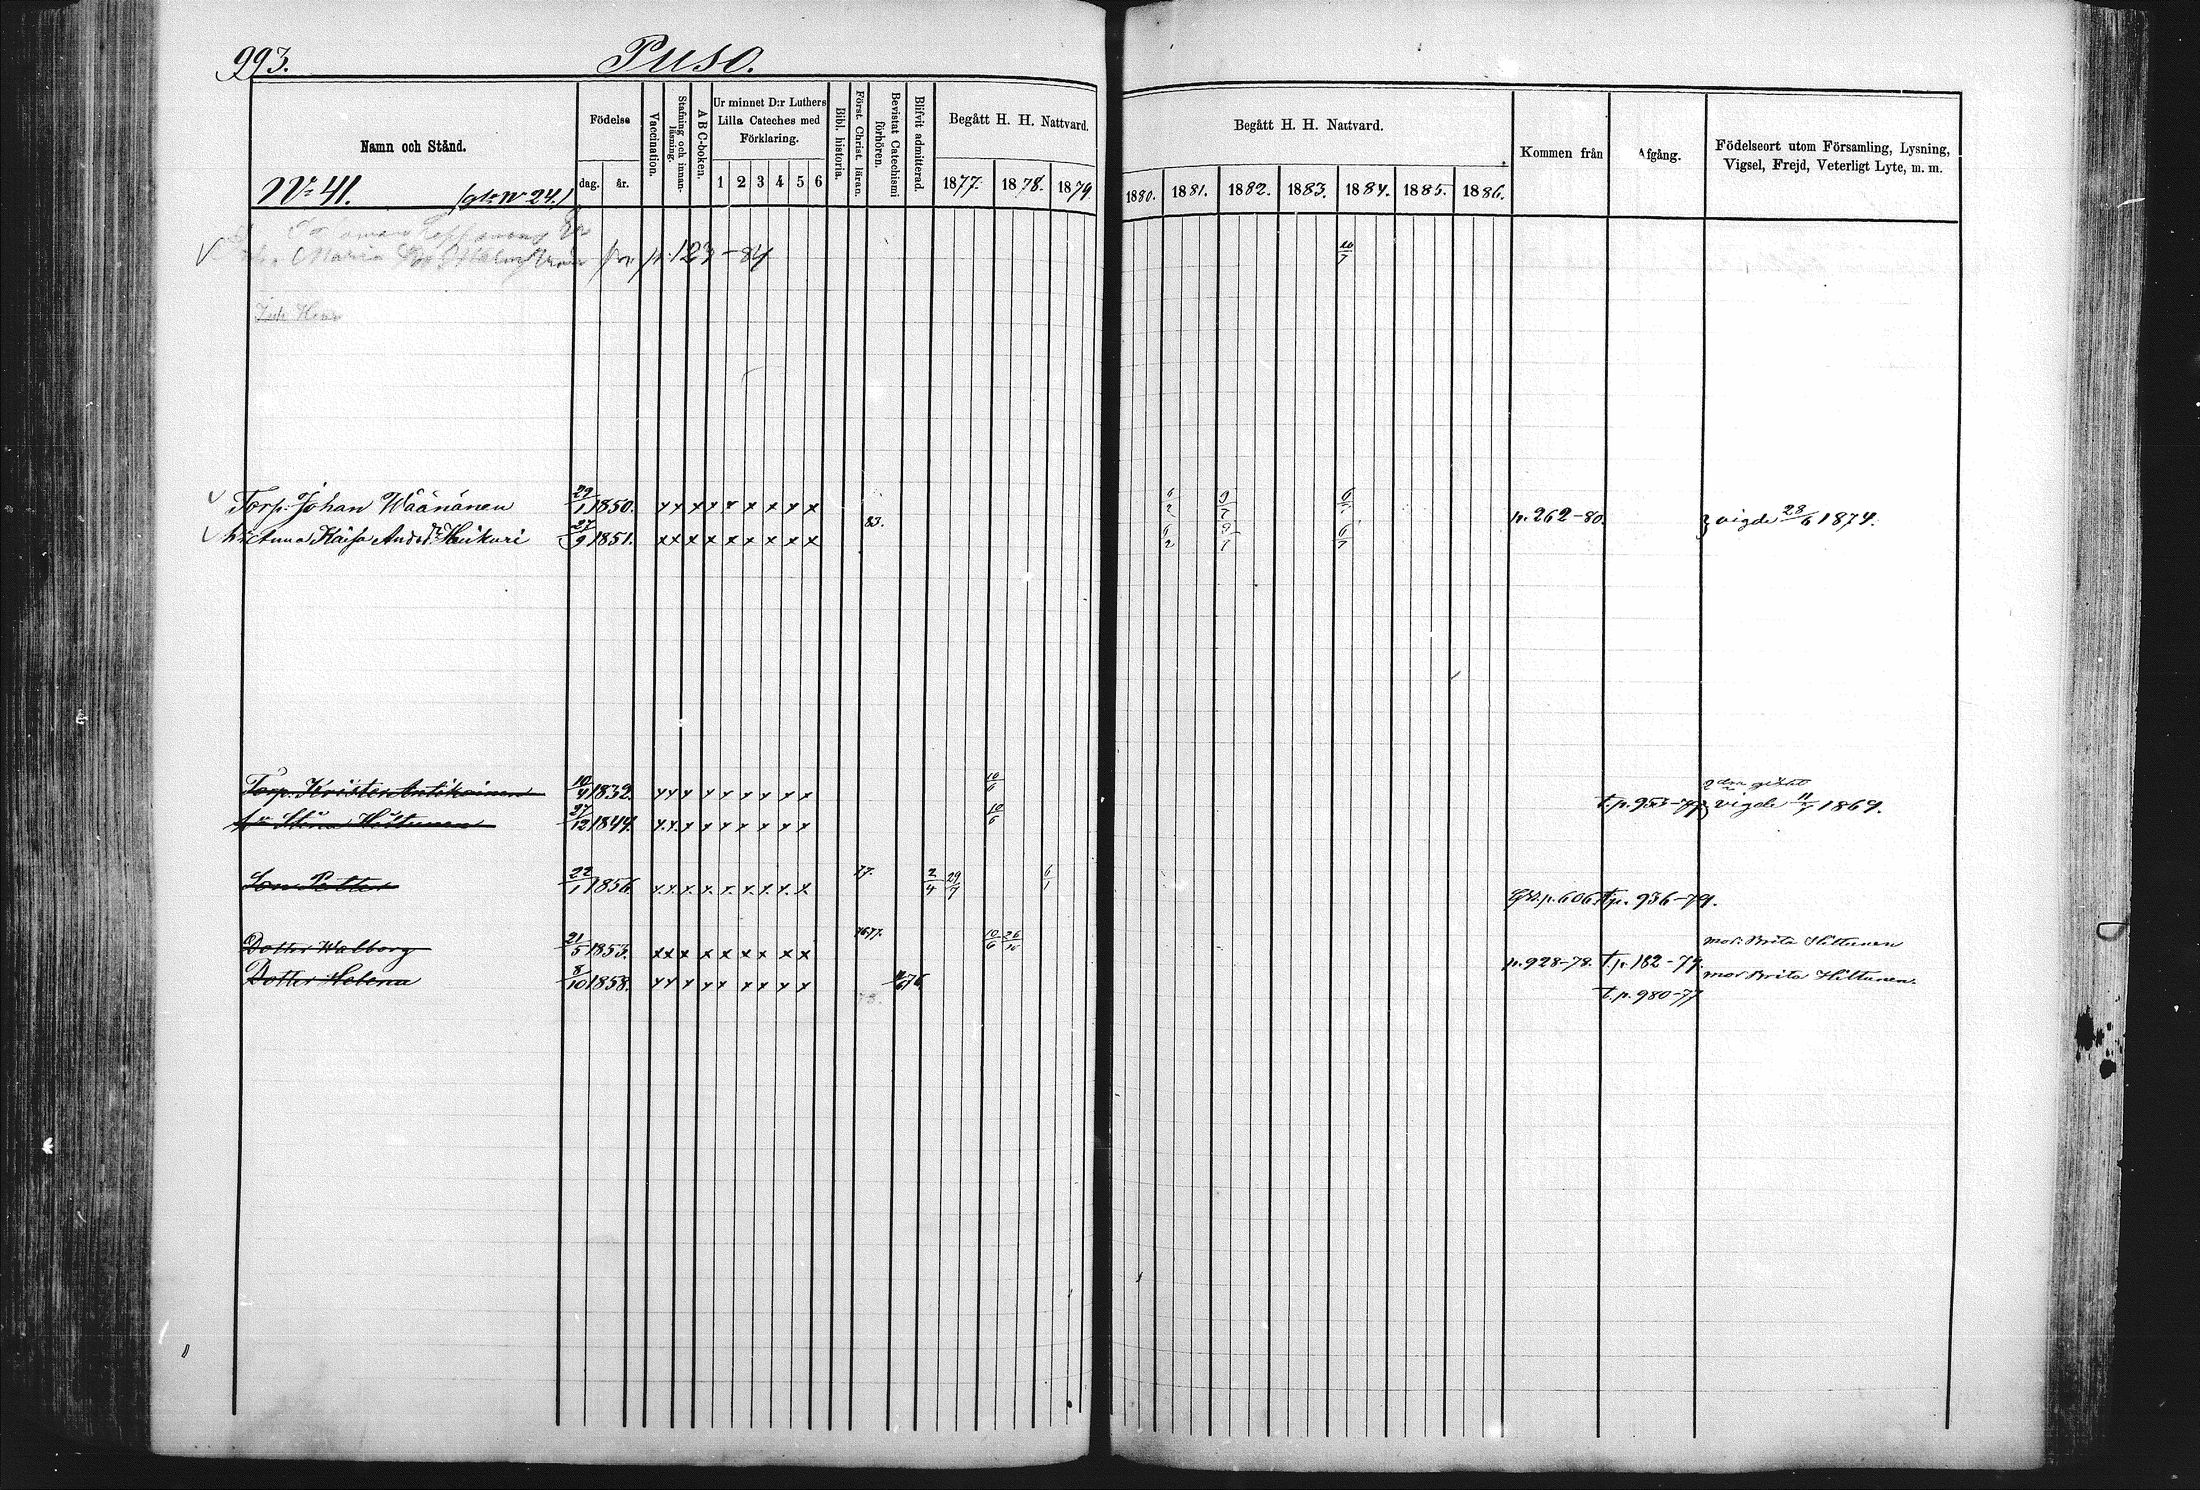 993. Puso.
Namn och Stånd.
Födelse
dag. år.
Vaccination.
Stafning och innanläsning.
A B C-boken.
Ur minnet D:r Luthers Lilla Cateches med Förklaring.
1 2 3 4 5 6
Bibl. historia.
Först. Christ. läran.
Bevistat Catechismi förhören.
Blifvit admitterad.
Begått H. H. Nattvard.
1877. 1878. 1879.
Begått H. H. Nattvard.
1880. 1881. 1882. 1883. 1884. 1885. 1886.
Kommen från
Afgång.
Födelseort utom Församling, Lysning, Vigsel, Frejd, Veterligt Lyte, m. m.
Nr 41. N 24.)
Maria p. 123-84 10/7
Torp. Johan Wäänänen 29/1 1850. x x x x x x x x x 6/2 9/7 p. 262-80. vigde 28/6 1874.
Anna Kaisa 27/9 1851. x x x x x x x x x 83. 6/2 9/7 6/7
Torp. Krister Antikainen 10/4 1832. x x x x x x x x x 10/6 2 gift
t.p. 953-79 vigde 11/7 1869.
Stina Hiltunen 27/12 1844. x x x x x x x x x 10/6
Son Petter 22/1 1856. x x x x x x x x x 77. 2/4 29/7 6/1 p. 606 t.p. 936-79.
Dotter Walborg 21/5 1853. x x x x x x x x x 10/6 26/10 p. 928-78. t.p. 182-79. mor: Brita Hiltunen
Dotter Helena 8/10 1858. x x x x x x x x x 78. t.p. 980-77 mor Brita Hiltunen.